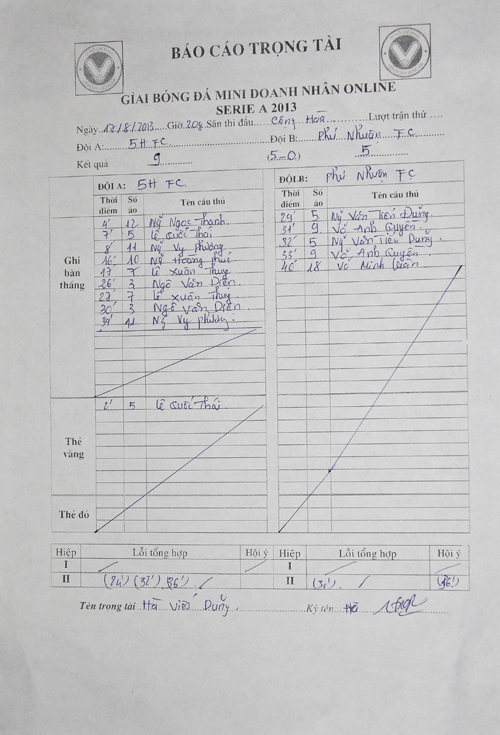 BÁO CÁO TRỌNG TÀI
GIẢI BÓNG ĐÁ MINI DOANH NHÂN ONLINE
SERIE A 2013
Ngày 17/8/2013 Giờ 20g Sân thi đấu Cộng Hoà Lượt trận thứ ....
Đội A: 5H FC Đội B: Phú Nhuận FC
Kết quả 9 (5-0) 5
ĐỘI A: 5H FC ĐỘI B: Phú Nhuận FC
Thời điểm Số áo Tên cầu thủ Thời điểm Số áo Tên cầu thủ
Ghi bàn thắng
4' 12 Ng Ngọc Thạnh 29' 5 Ng Văn Tiến Dũng
7' 5 Lê Quốc Thái 31' 9 Võ Anh Quyền
8' 11 Ng Vy Phương 32' 5 Ng Văn Tiến Dũng
16' 10 Ng Hoàng Phúc 33' 9 Võ Anh Quyền
17' 7 Lê Xuân Thuy 40' 18 Võ Minh Luân
26' 3 Ngô Văn Diễn
27' 7 Lê Xuân Thuy
30' 3 Ngô Văn Diễn
39' 11 Ng Vy Phương
Thẻ vàng
2' 5 Lê Quốc Thái
Thẻ đỏ
Hiệp Lỗi tổng hợp Hội ý Hiệp Lỗi tổng hợp Hội ý
I I
II (24') (32') (36') II (32') (36')
Tên trọng tài Hà Viết Dũng Ký tên Hà